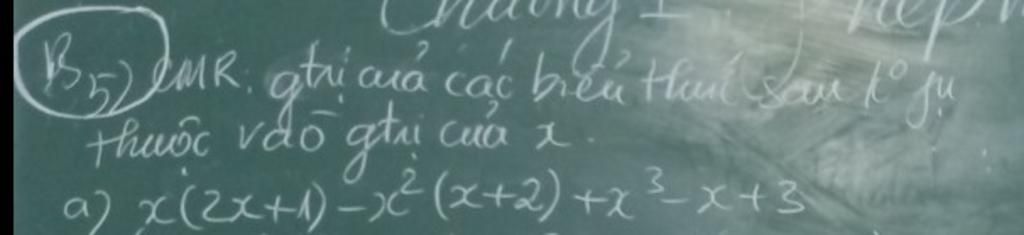 Chương I
B5) CMR: gtrị của các biểu thức sau k° fụ
thuộc vào gtrị của x.
a) x(2x+1)-x²(x+2)+x³-x+3